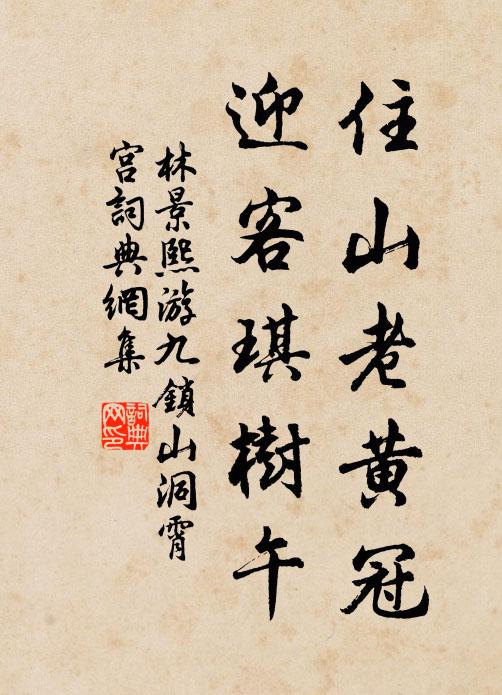 住山老黄冠
迎客琪樹午
林景熙游九鎖山洞霄
宮詞典網集
詞典
网印